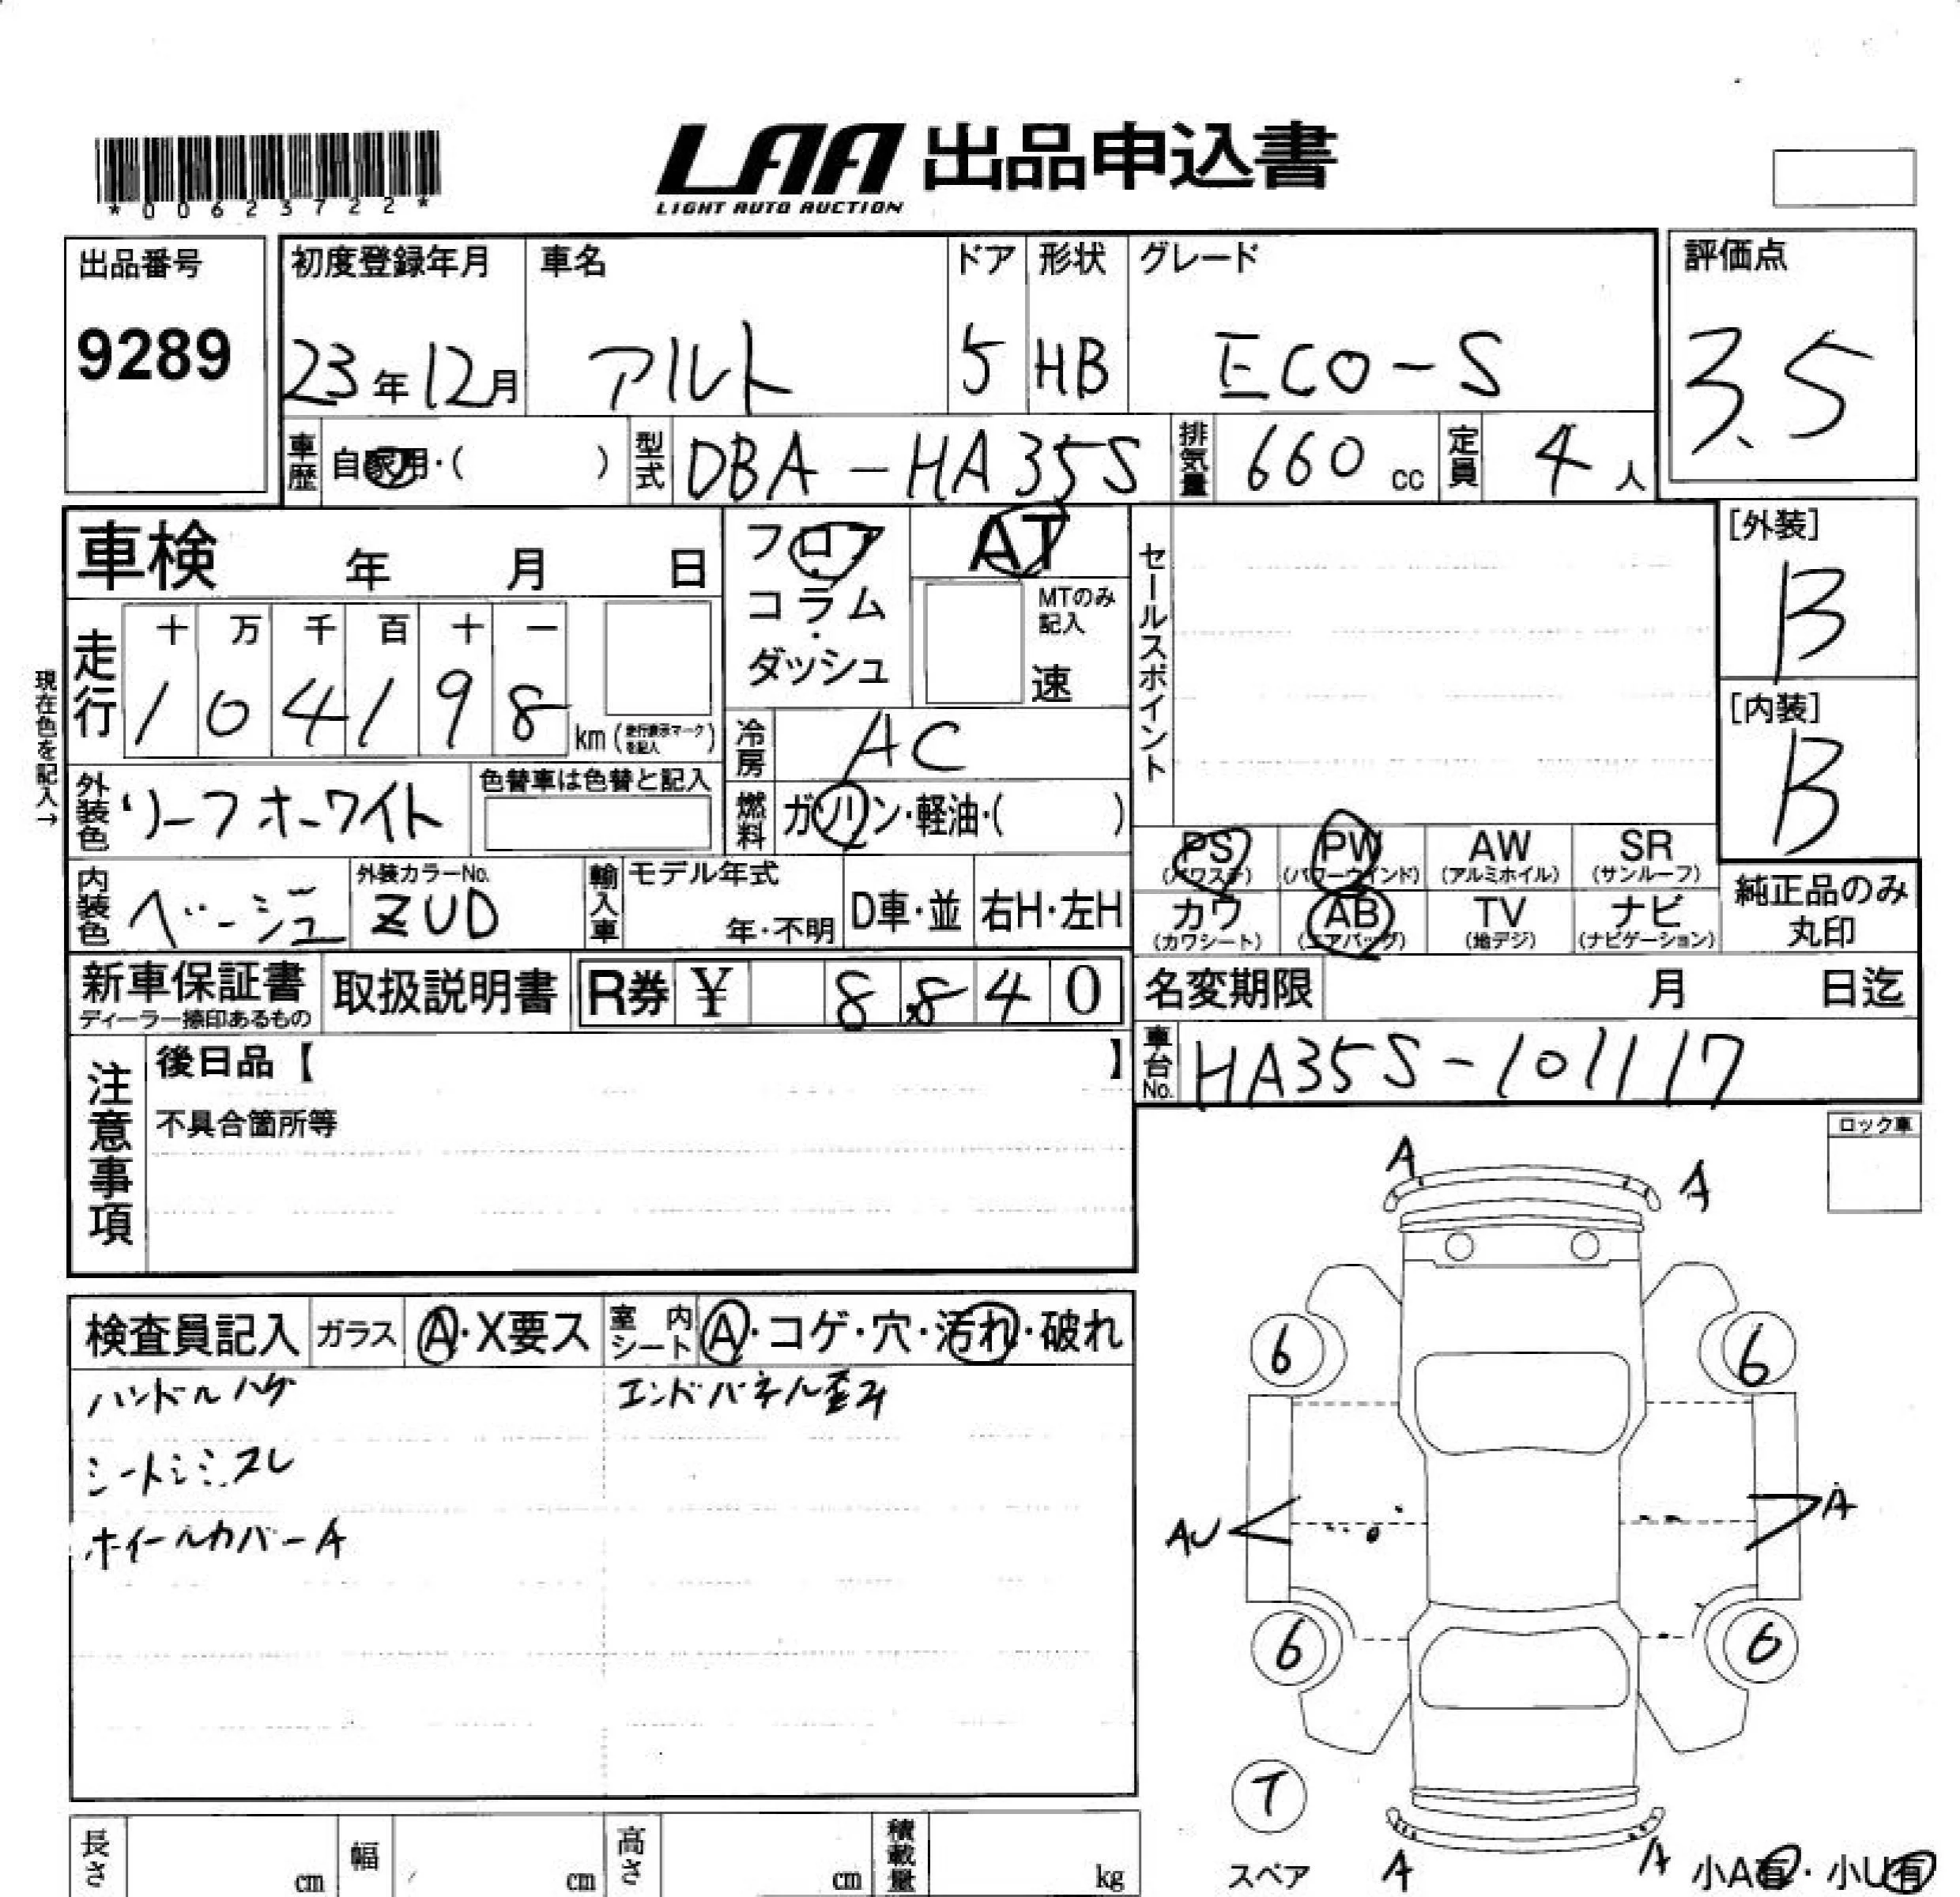 *00623722*
LAA 出品申込書
LIGHT AUTO AUCTION
出品番号
9289
初度登録年月
23年12月
車名
アルト
ドア
5
形状
HB
グレード
ECO-S
評価点
3.5
車歴 自家用・( )
型式 DBA-HA35S
排気量 660 cc
定員 4人
車検 年 月 日
フロア・コラム・ダッシュ
AT
MTのみ記入
速
セールスポイント
[外装]
B
[内装]
B
現在色を記入→
走行
十 万 千 百 十 一
1 0 4 1 9 8 km (走行表示マークを記入)
冷房 AC
外装色 リーフホワイト
色替車は色替と記入
燃料 ガソリン・軽油・( )
内装色 ベージュ
外装カラーNo.
ZUD
輸入車
モデル年式
年・不明
D車・並
右H・左H
PS
(パワステ)
PW
(パワーウインド)
AW
(アルミホイル)
SR
(サンルーフ)
カワ
(カワシート)
AB
(エアバッグ)
TV
(地デジ)
ナビ
(ナビゲーション)
純正品のみ
丸印
新車保証書
ディーラー捺印あるもの
取扱説明書
R券 ¥ 8,840
名変期限 月 日迄
車台No. HA35S-101117
注意事項
後日品【 】
不具合箇所等
ロック車
検査員記入
ガラス A・X要ス
室内シート A・コゲ・穴・汚れ・破れ
ハンドルハゲ
エンドパネル歪み
シートシミスレ
ホイールカバーA
A
A
6
6
AU
A
6
6
T
スペア
A
A
小A有・小U有
長さ cm
幅 cm
高さ cm
積載量 kg